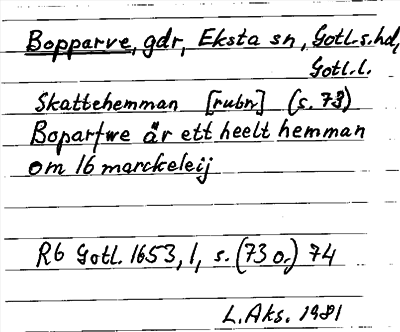 Bopparve, gdr, Eksta sn, Gotl.s.hd,
Gotl.l.
Skattehemman [rubr] (s. 73)
Boparfwe är ett heelt hemman
om 16 marckeleij
Rb Gotl. 1653, 1, s. (73 o.) 74
L. Aks. 1981